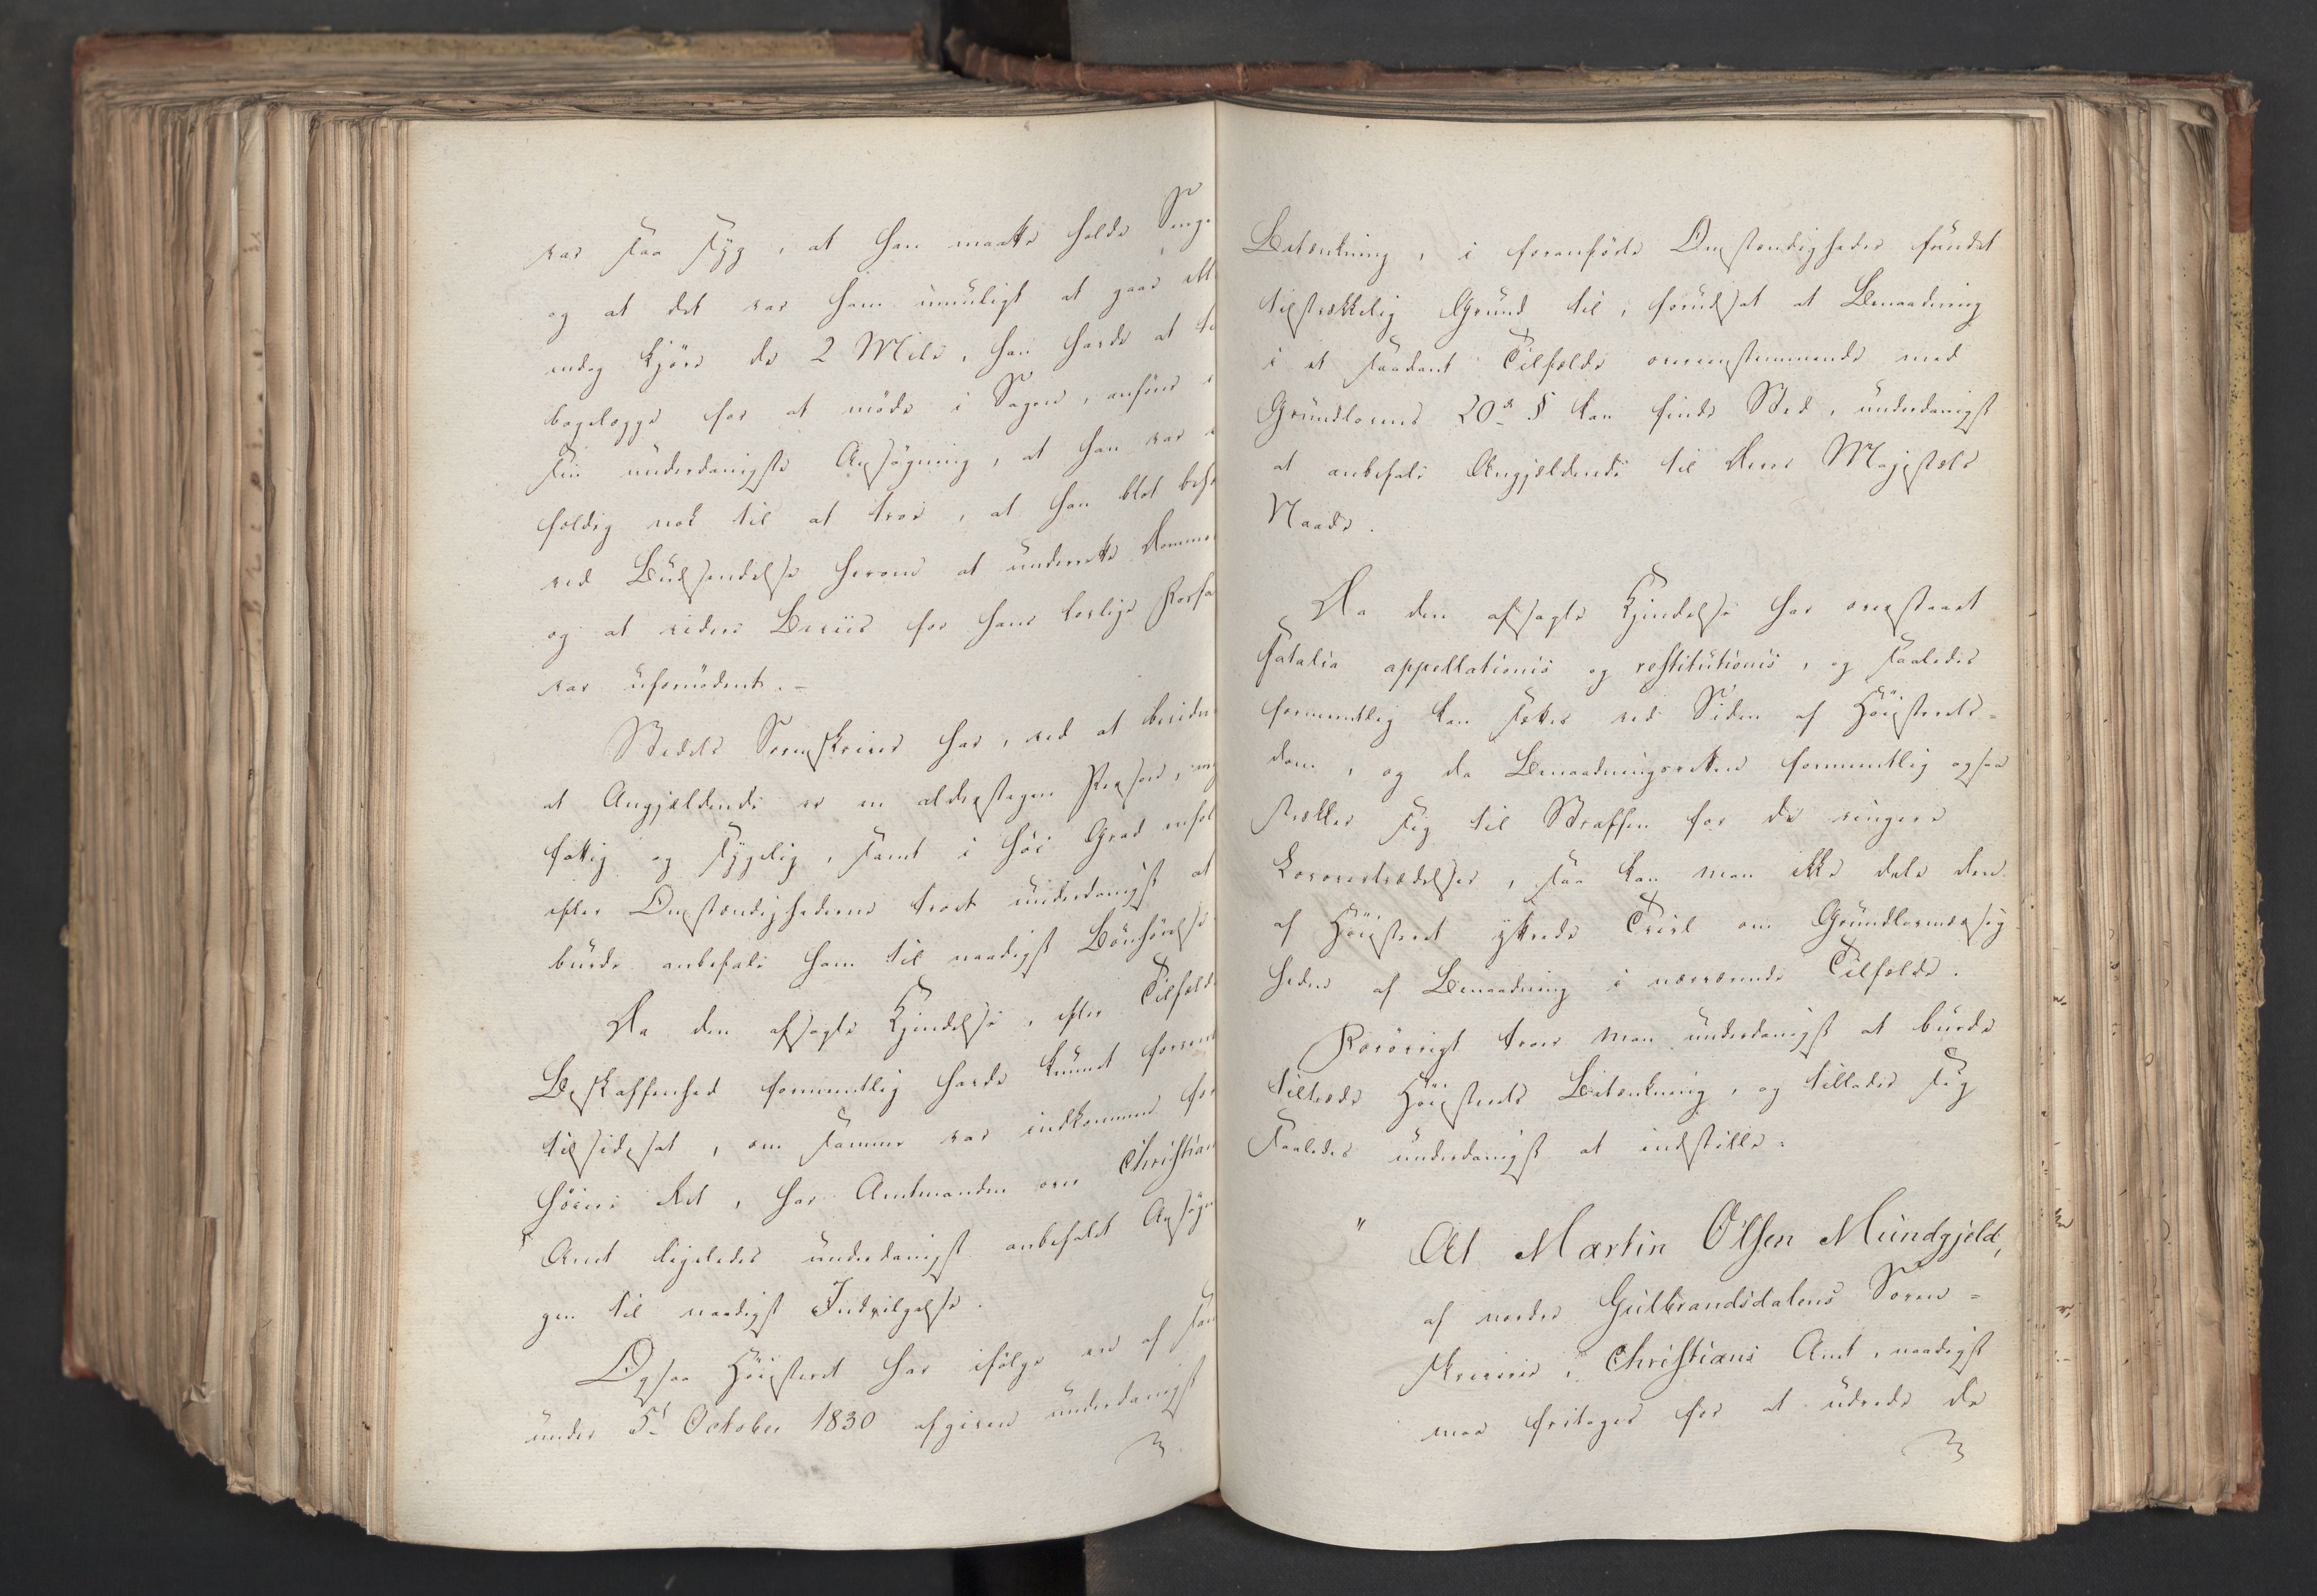 var saa syg, at han maatte holde Senge
og at det var ham umuligt at gaae ell
endog kjøre de 2 Mile, han havde at ti
bagelægge for at møde i Sagen, anføres i
sin underdanigste Ansøgning, at han var e
foldig nok til at troe, at han blot beh
ved Budsendelse herom at underrette Domme
og at videre Beviis for hans lovlige Forfa
var ufornødent. -
Stedets Sorenskriver har, ved at bevidne
at Angjældende er en alderstegen Person, meg
fattig og sygelig, samt i høi Grad enfol
efter Omstændighederne troet underdanigst at
burde anbefale ham til naadigst Bønhørelse
Da den afsagte Kjendelse, efter Tilfælde
Beskaffenhed formentlig havde kunnet forvent
tilsidesat, om samme var indkommen for
høiere Ret, har Amtmanden over Christian
Amt ligeledes underdanigst anbefalet Ansøgn
gen til naadigst Indvilgelse.
Ogsaa Høiesteret har ifølge en af sam
under 5t October 1830 afgiven underdanigst
Betænkning, i foranførte Omstændigheder fundet
tilstrækkelig Grund til, forudsat at Benaadning
i et saadant Tilfælde overeensstemmende med
Grundlovens 20de § kan finde Sted, underdanigst
at anbefale Angjældende til Deres Majestæts
Naade.
Da den afsagte Kjendelse har overstaaet
fatalia appellationis og restitutionis, og saaledes
formentlig kan sættes ved Siden af Høiesterets=
dom, og da Benaadningsretten formentlig ogsaa
strækker sig til Straffen for de ringere
Lovovertrædelser, saa kan man ikke dele den
af Høiesteret yttrede Tvivl om Grundlovmæssig
heden af Benaadning i nærværende Tilfælde.
Forøvrigt troer man underdanigst at burde
tiltræde Høiesterets Betænkning, og tillader sig
saaledes underdanigst at indstille:
" At Martin Olsen Mundgjeld,
af nordre Gulbrandsdalens Soren=
skriverie i Christians Amt, naadigst
maa fritages for at udrede de